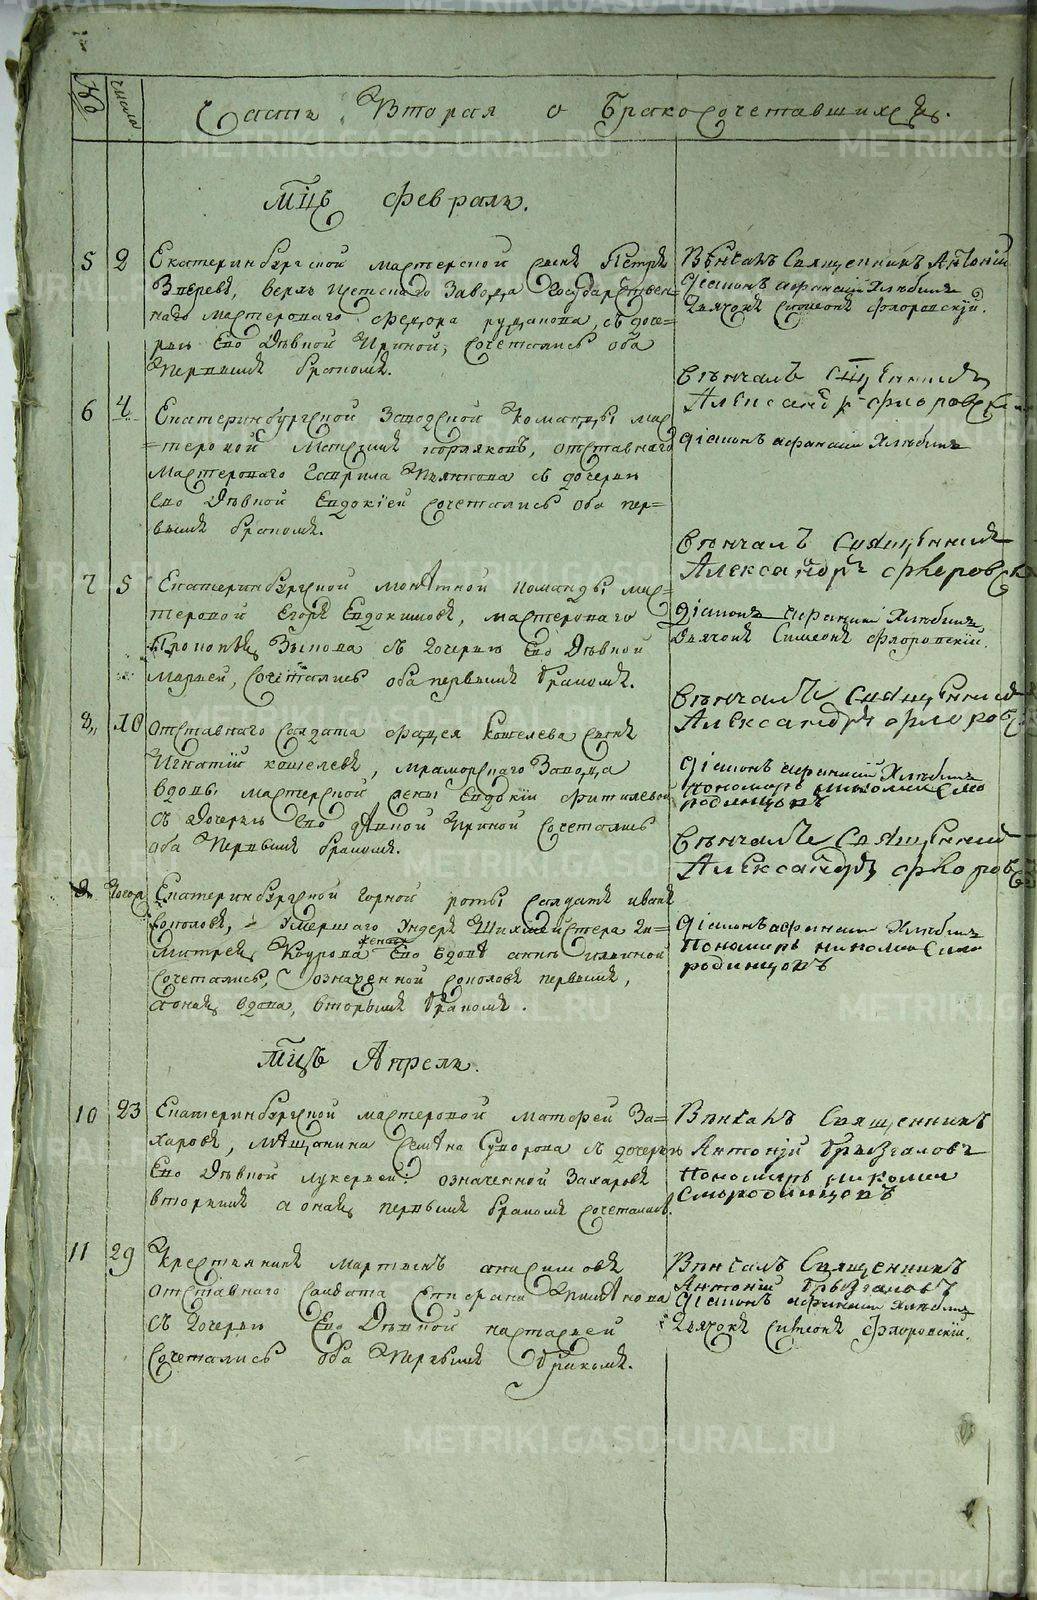 № числа Часть Вторая о Бракосочетавшихся.
Мцъ Февраль.
5 2 Екатеринбургской мастерской сынъ Петръ
Зверевъ, Верхъ Исетскаго Завода Государствен-
наго мастероваго Федора Рудакова, съ доче-
рью Ево Девкой Ириной, сочетались оба
Первымъ бракомъ.
Венчалъ Священникъ Антоній
Діаконъ Афанасій Хлебинъ
Дьячокъ Симеонъ Флоровскій.
6 4 Екатеринбургской Заводской Команды мас-
теровой Коряковъ, отставнаго
мастероваго Гаврила съ дочерью
Ево Девкой Евдокіей сочетались оба пер-
вымъ бракомъ.
Венчалъ Сщенникъ
Александръ Флоровск
Діаконъ Афанасій Хлебинъ
7 5 Екатеринбургской монетной команды мас-
теровой Егоръ Евдокимовъ, мастероваго
Прокопья Зыкова съ дочерью Ево Девкой
Марьей, сочетались оба первымъ бракомъ.
Венчалъ Священникъ
Александръ Флоровск
Діаконъ Афанасій Хлебинъ
Дьячокъ Симеонъ Флоровскій.
8 10 Отставнаго Солдата Фадея Кошелева сынъ
Игнатій Кошелевъ, Мраморскаго Завода
вдовы мастерской жены Евдокіи Фитилевой
съ Дочерью Ево Девкой Ириной Сочетались
оба Первымъ бракомъ.
Венчалъ Священник
Александръ Флоровс
Діаконъ Афанасій Хлебинъ
Пономарь Николай Смо
родинцовъ
9 Екатеринбургской горной роты Солдатъ Иванъ
Соколовъ, Умершаго Ундеръ Шихмейстера Ди-
митрея женою Ево вдова
Сочетались, означенной Соколовъ первымъ,
а оная вдова, вторымъ бракомъ.
Венчалъ Священник
Александръ Флоровс
Діаконъ Афанасій Хлебинъ
Пономарь Николай Смо
родинцовъ
Мцъ Апрель.
10 23 Екатеринбургской мастеровой Матфей За-
харовъ, мещанина Семена Суворова съ дочерью
Ево Девкой Лукерьей означенной Захаровъ
вторымъ а оная первымъ бракомъ сочетались.
Венчалъ Священникъ
Антоній Брызгаловъ
Пономарь Николай
Смородинцовъ
11 29 Крестьянинъ Мартынъ Анисимовъ
отставнаго Солдата
съ Дочерью Ево Девкой Настасьей
Сочетались оба Первымъ бракомъ.
Венчалъ Священникъ
Антоній Брызгаловъ
Діаконъ Афанасій Хлебинъ
Дьячокъ Симеонъ Флоровскій.
METRIKI.GASO-URAL.RU